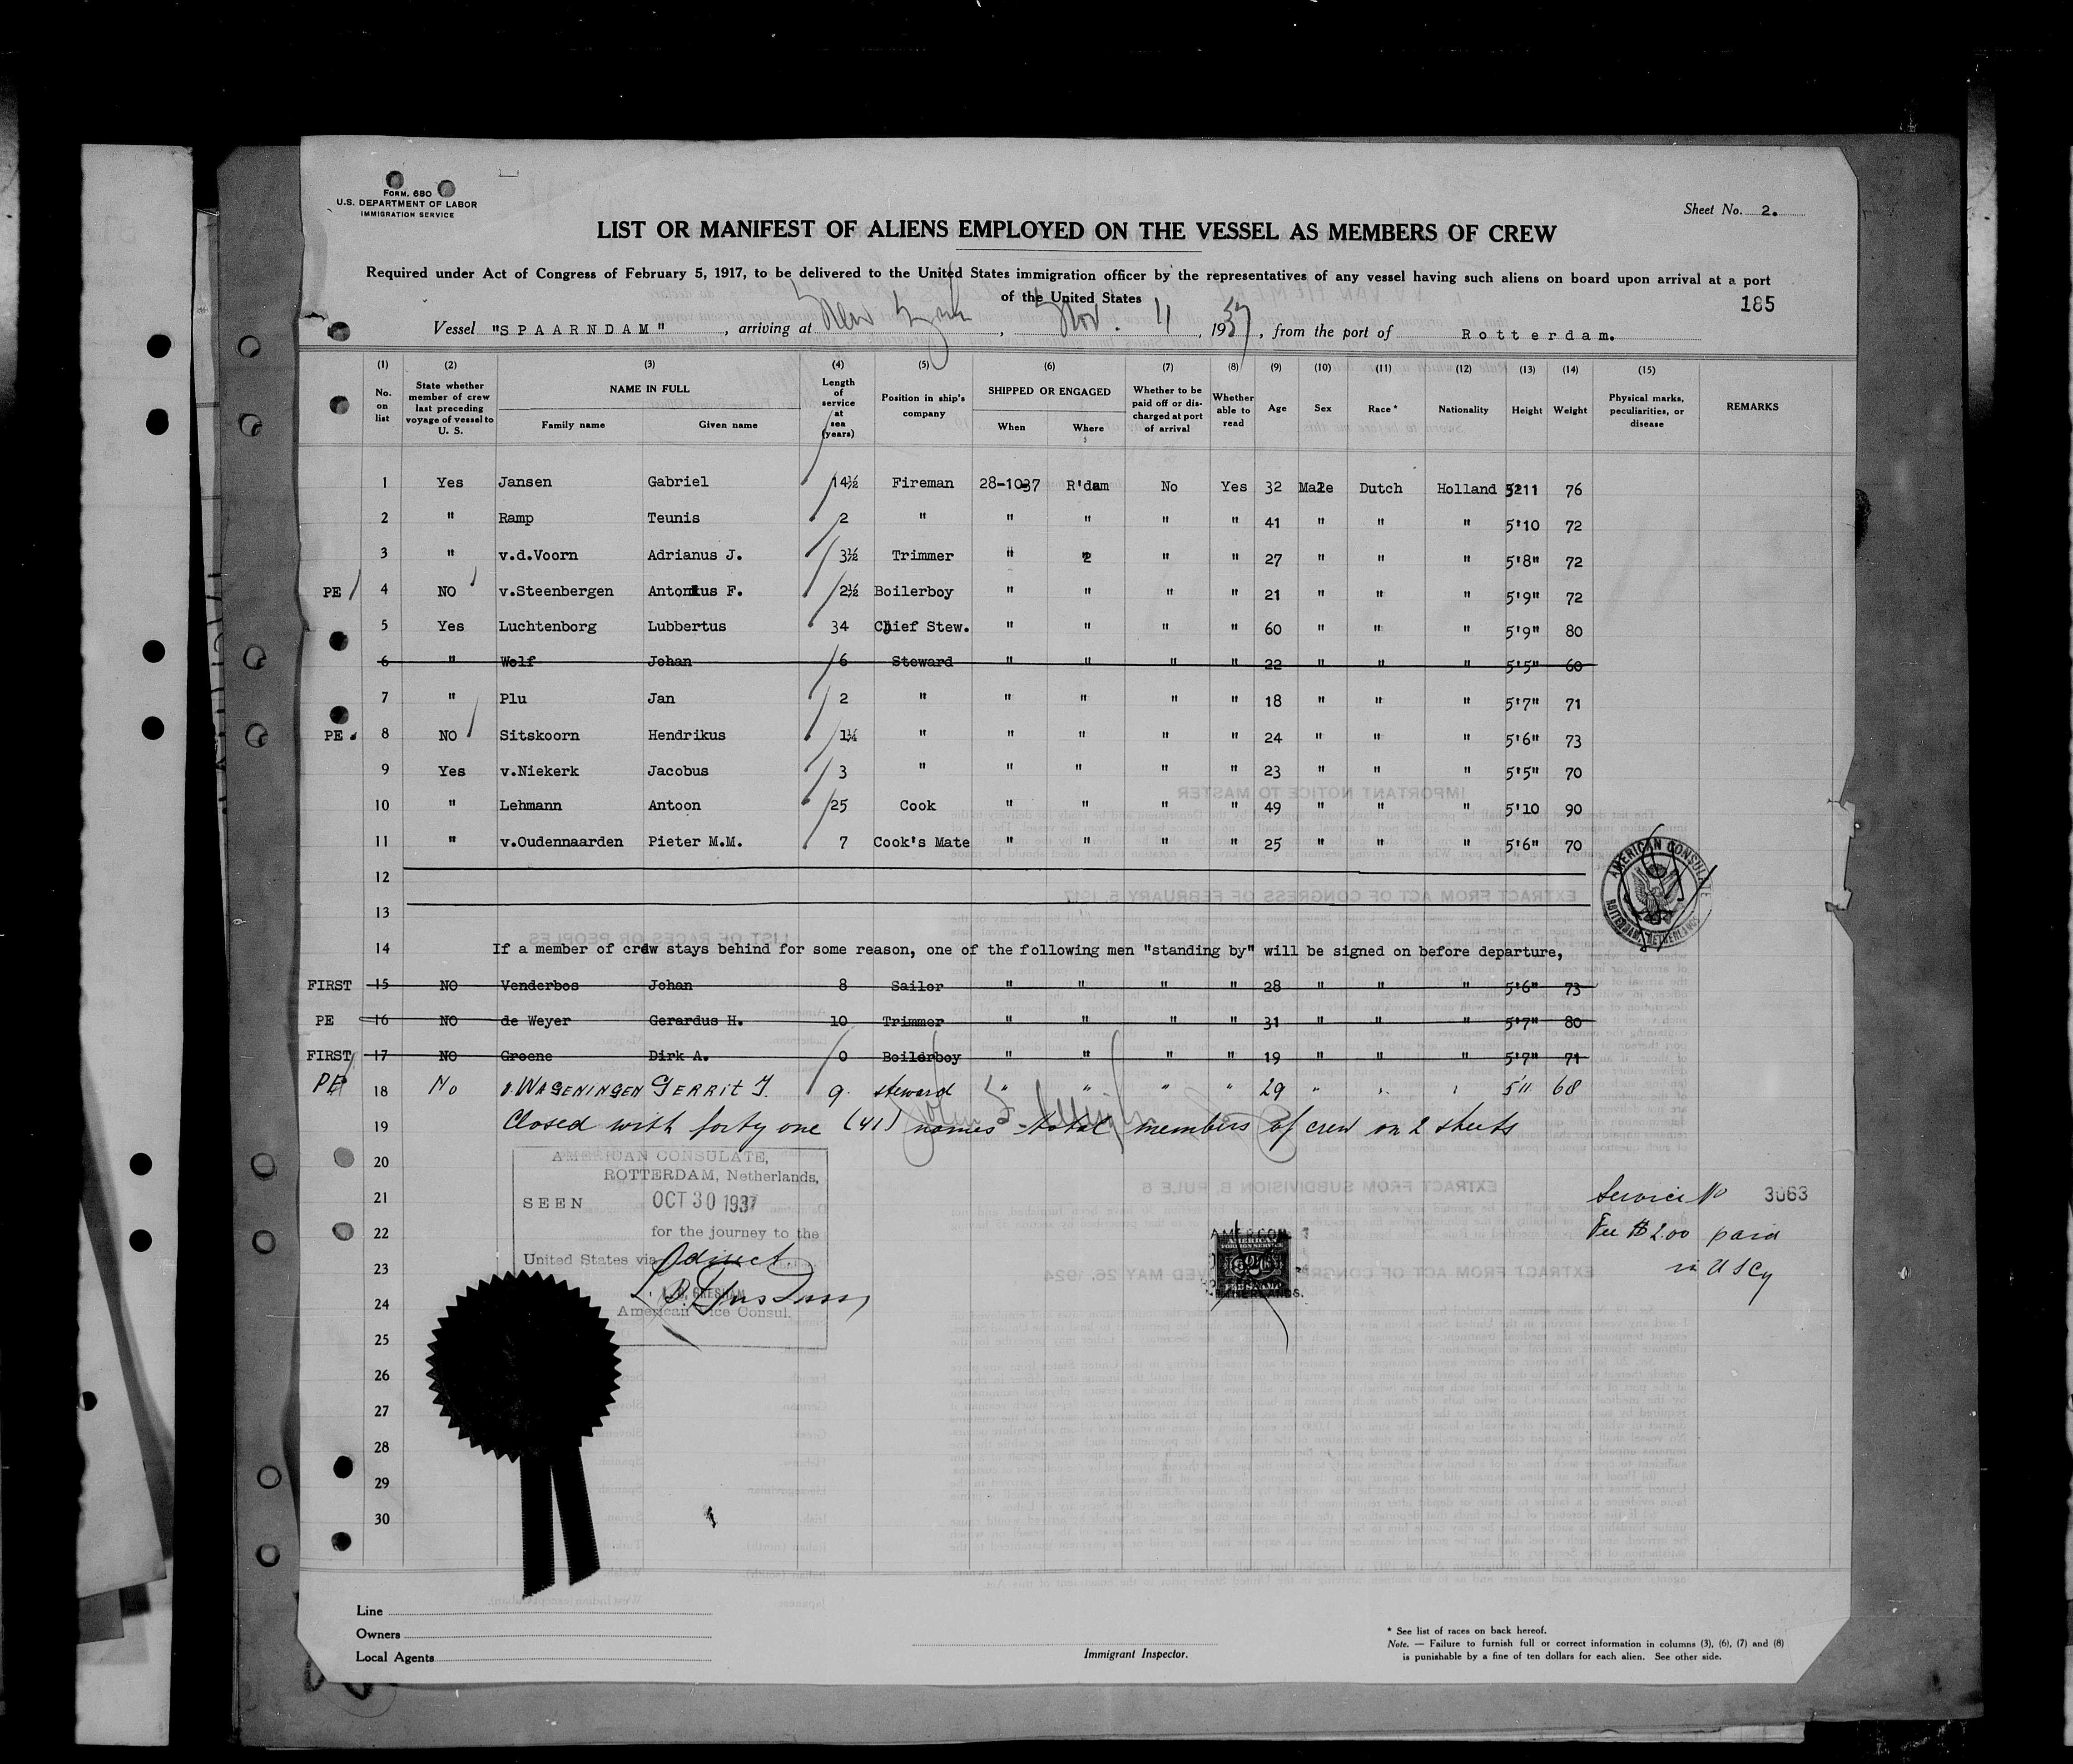 FORM. 680
U.S. DEPARTMENT OF LABOR
IMMIGRATION SERVICE
Sheet No. 2.
LIST OR MANIFEST OF ALIENS EMPLOYED ON THE VESSEL AS MEMBERS OF CREW
Required under Act of Congress of February 5, 1917, to be delivered to the United States immigration officer by the representatives of any vessel having such aliens on board upon arrival at a port
of the United States
185
Vessel "SPAARNDAM", arriving at New York, Nov. 11, 1937, from the port of Rotterdam.
(1) (2) (3) (4) (5) (6) (7) (8) (9) (10) (11) (12) (13) (14) (15)
No. on list State whether member of crew last preceding voyage of vessel to U. S. NAME IN FULL Family name Given name Length of service at sea (years) Position in ship's company SHIPPED OR ENGAGED When Where Whether to be paid off or discharged at port of arrival Whether able to read Age Sex Race* Nationality Height Weight Physical marks, peculiarities, or disease REMARKS
1 Yes Jansen Gabriel 14½ Fireman 28-1037 R'dam No Yes 32 Male Dutch Holland 5'11 76
2 " Ramp Teunis 2 " " " " " 41 " " " 5'10 72
3 " v.d.Voorn Adrianus J. 3½ Trimmer " " " " 27 " " " 5'8" 72
PE 4 NO v.Steenbergen Antonius F. 2½ Boilerboy " " " " 21 " " " 5'9" 72
5 Yes Luchtenborg Lubbertus 34 Chief Stew. " " " " 60 " " " 5'9" 80
6 " Wolf Johan 6 Steward " " " " 22 " " " 5'5" 60
7 " Plu Jan 2 " " " " " 18 " " " 5'7" 71
PE 8 NO Sitskoorn Hendrikus 1¼ " " " " " 24 " " " 5'6" 73
9 Yes v.Niekerk Jacobus 3 " " " " " 23 " " " 5'5" 70
10 " Lehmann Antoon 25 Cook " " " " 49 " " " 5'10 90
11 " v.Oudennaarden Pieter M.M. 7 Cook's Mate " " " " 25 " " " 5'6" 70
12
13
AMERICAN CONSULATE ROTTERDAM, NETHERLANDS
14 If a member of crew stays behind for some reason, one of the following men "standing by" will be signed on before departure,
FIRST 15 NO Venderbos Johan 8 Sailor " " " " 28 " " " 5'6" 73
PE 16 NO de Weyer Gerardus H. 10 Trimmer " " " " 31 " " " 5'7" 80
FIRST 17 NO Groene Dirk A. 0 Boilerboy " " " " 19 " " " 5'7" 71
PE 18 No v. WAGENINGEN GERRIT J. 9. steward " " " " 29 " " " 5'11 68
19 Closed with forty one (41) names - total members of crew on 2 sheets
20 AMERICAN CONSULATE,
ROTTERDAM, Netherlands,
21 SEEN OCT 30 1937
Service No 3063
22 for the journey to the
Fee $2.00 paid
23 United States via direct.
in U S Cy
24 American Vice Consul.
25
26
27
28
29
30
Line
Owners
Local Agents
Immigrant Inspector.
* See list of races on back hereof.
Note. — Failure to furnish full or correct information in columns (3), (6), (7) and (8)
is punishable by a fine of ten dollars for each alien. See other side.